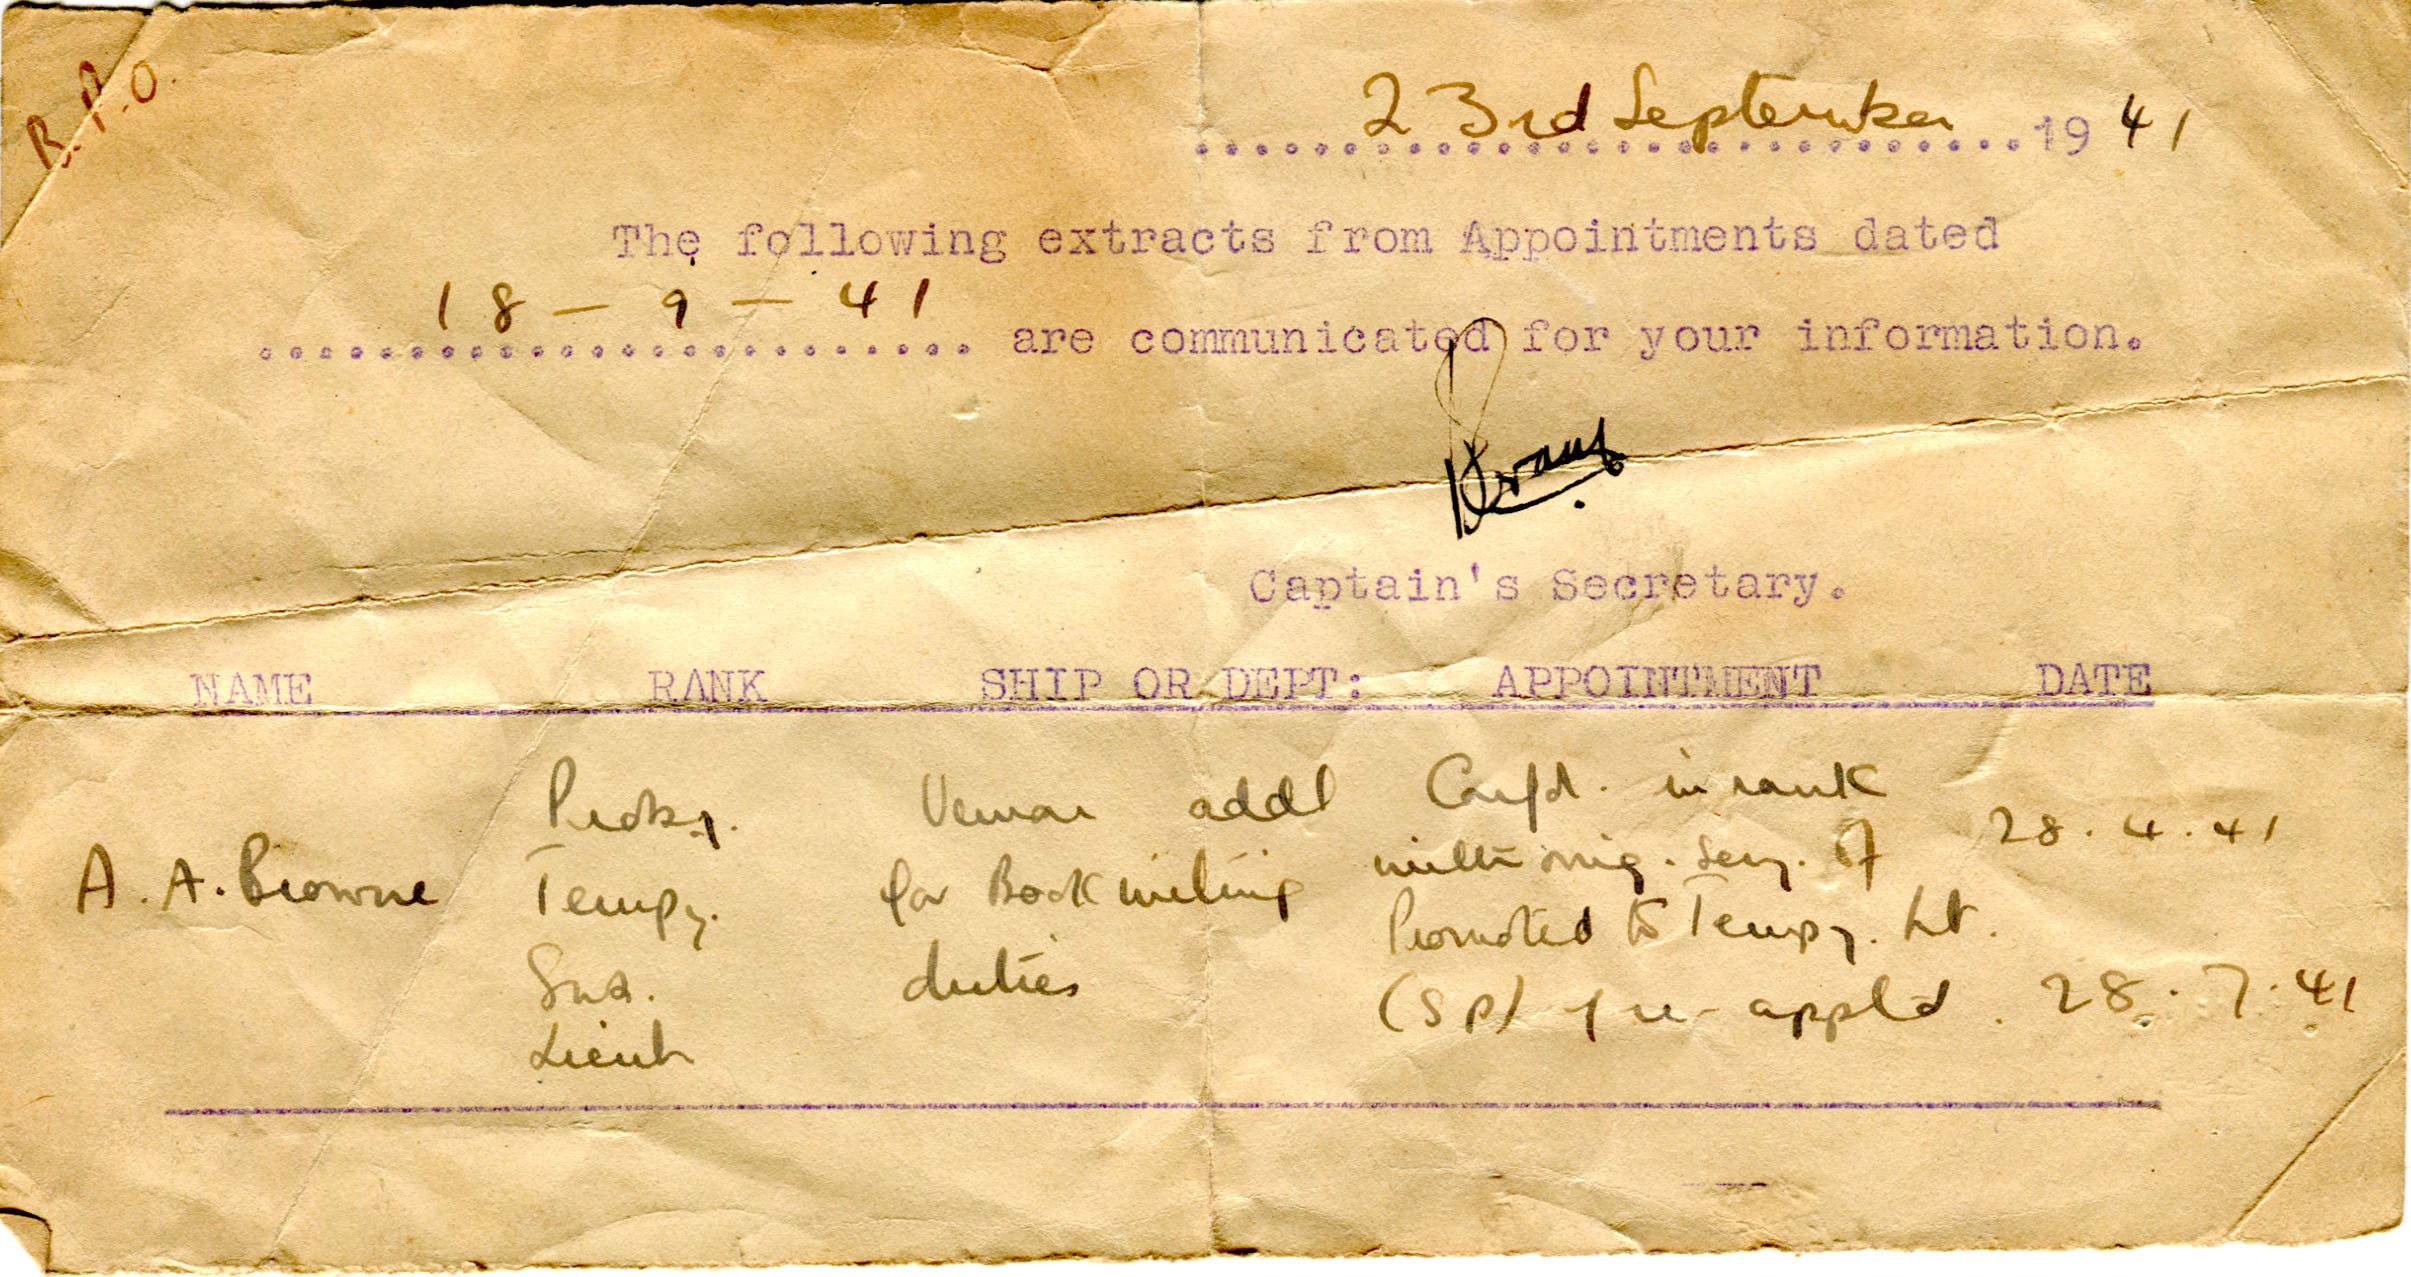 R.P.O.
23rd September 1941
The following extracts from Appointments dated
18 – 9 – 41 are communicated for your information.
Captain's Secretary.
NAME RANK SHIP OR DEPT: APPOINTMENT DATE
A. A. Browne Proby. Vernon addl Confd. in rank 28.4.41
Tempy. for Bookwriting with orig. seny. of
Sub. duties Promoted to Tempy. Lt.
Lieut (Sp) & re-apptd. 28.7.41